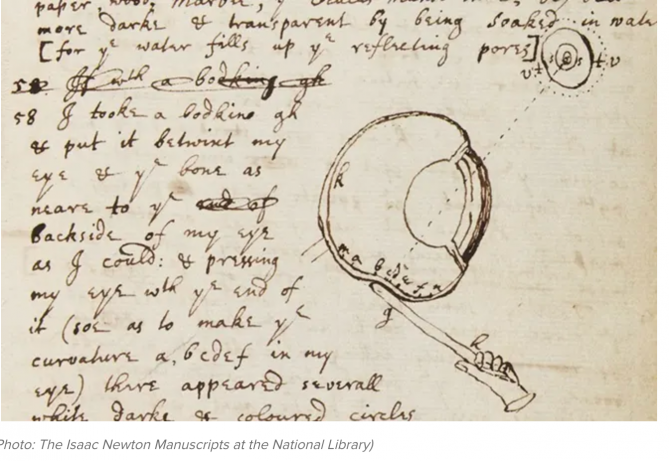 paper, wood, marble, ye
more darke & transparent by being soaked in wate
[for ye water fills up ye reflecting pores]
58 If wth a bodking gh
58 I tooke a bodkine gh
& put it betwixt my
eye & ye bone as
neare to ye end of
backside of my eye
as I could: & pressing
my eye wth ye end of
it (soe as to make ye
curvature a, bcdef in my
eye) there appeared severall
white darke & coloured circles
v t s s t v
k
m a b c d e f n
g
h
Photo: The Isaac Newton Manuscripts at the National Library)